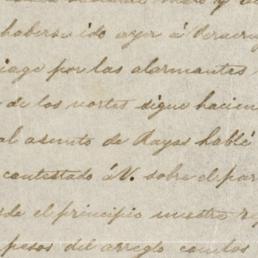 haberse ido ayer á Veracru
iage por las alarmantes
de los nortes sigue hacien
al asunto de Rayas hablé
contestado á V. sobre el par
de el principio nuestro re
pesos del arreglo con los